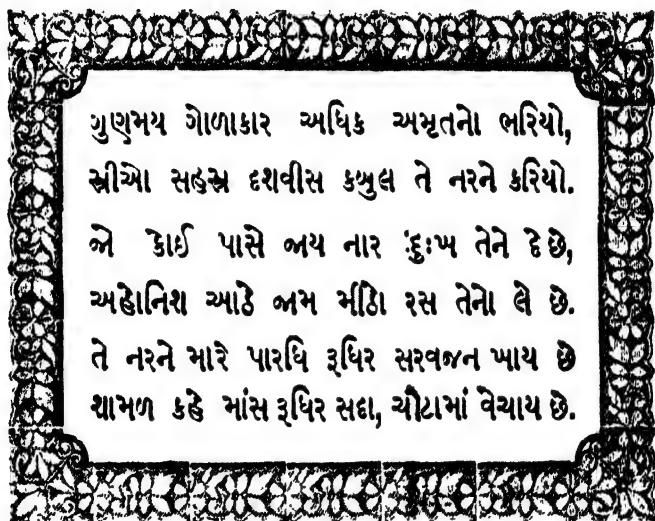 ગુણમય ગોળાકાર અધિક અમૃતનો ભરિયો,
સ્રીઓ સહસ્ર દશવીસ કબુલ તે નરને કરિયો.
જો કોઈ પાસે જાય નાર દુઃખ તેને દે છે,
અહોનિશ આઠે જામ મીઠો રસ તેનો લે છે.
તે નરને મારે પારધિ રૂધિર સરવજન ખાય છે
શામળ કહે માંસ રૂધિર સદા, ચૌટામાં વેચાય છે.